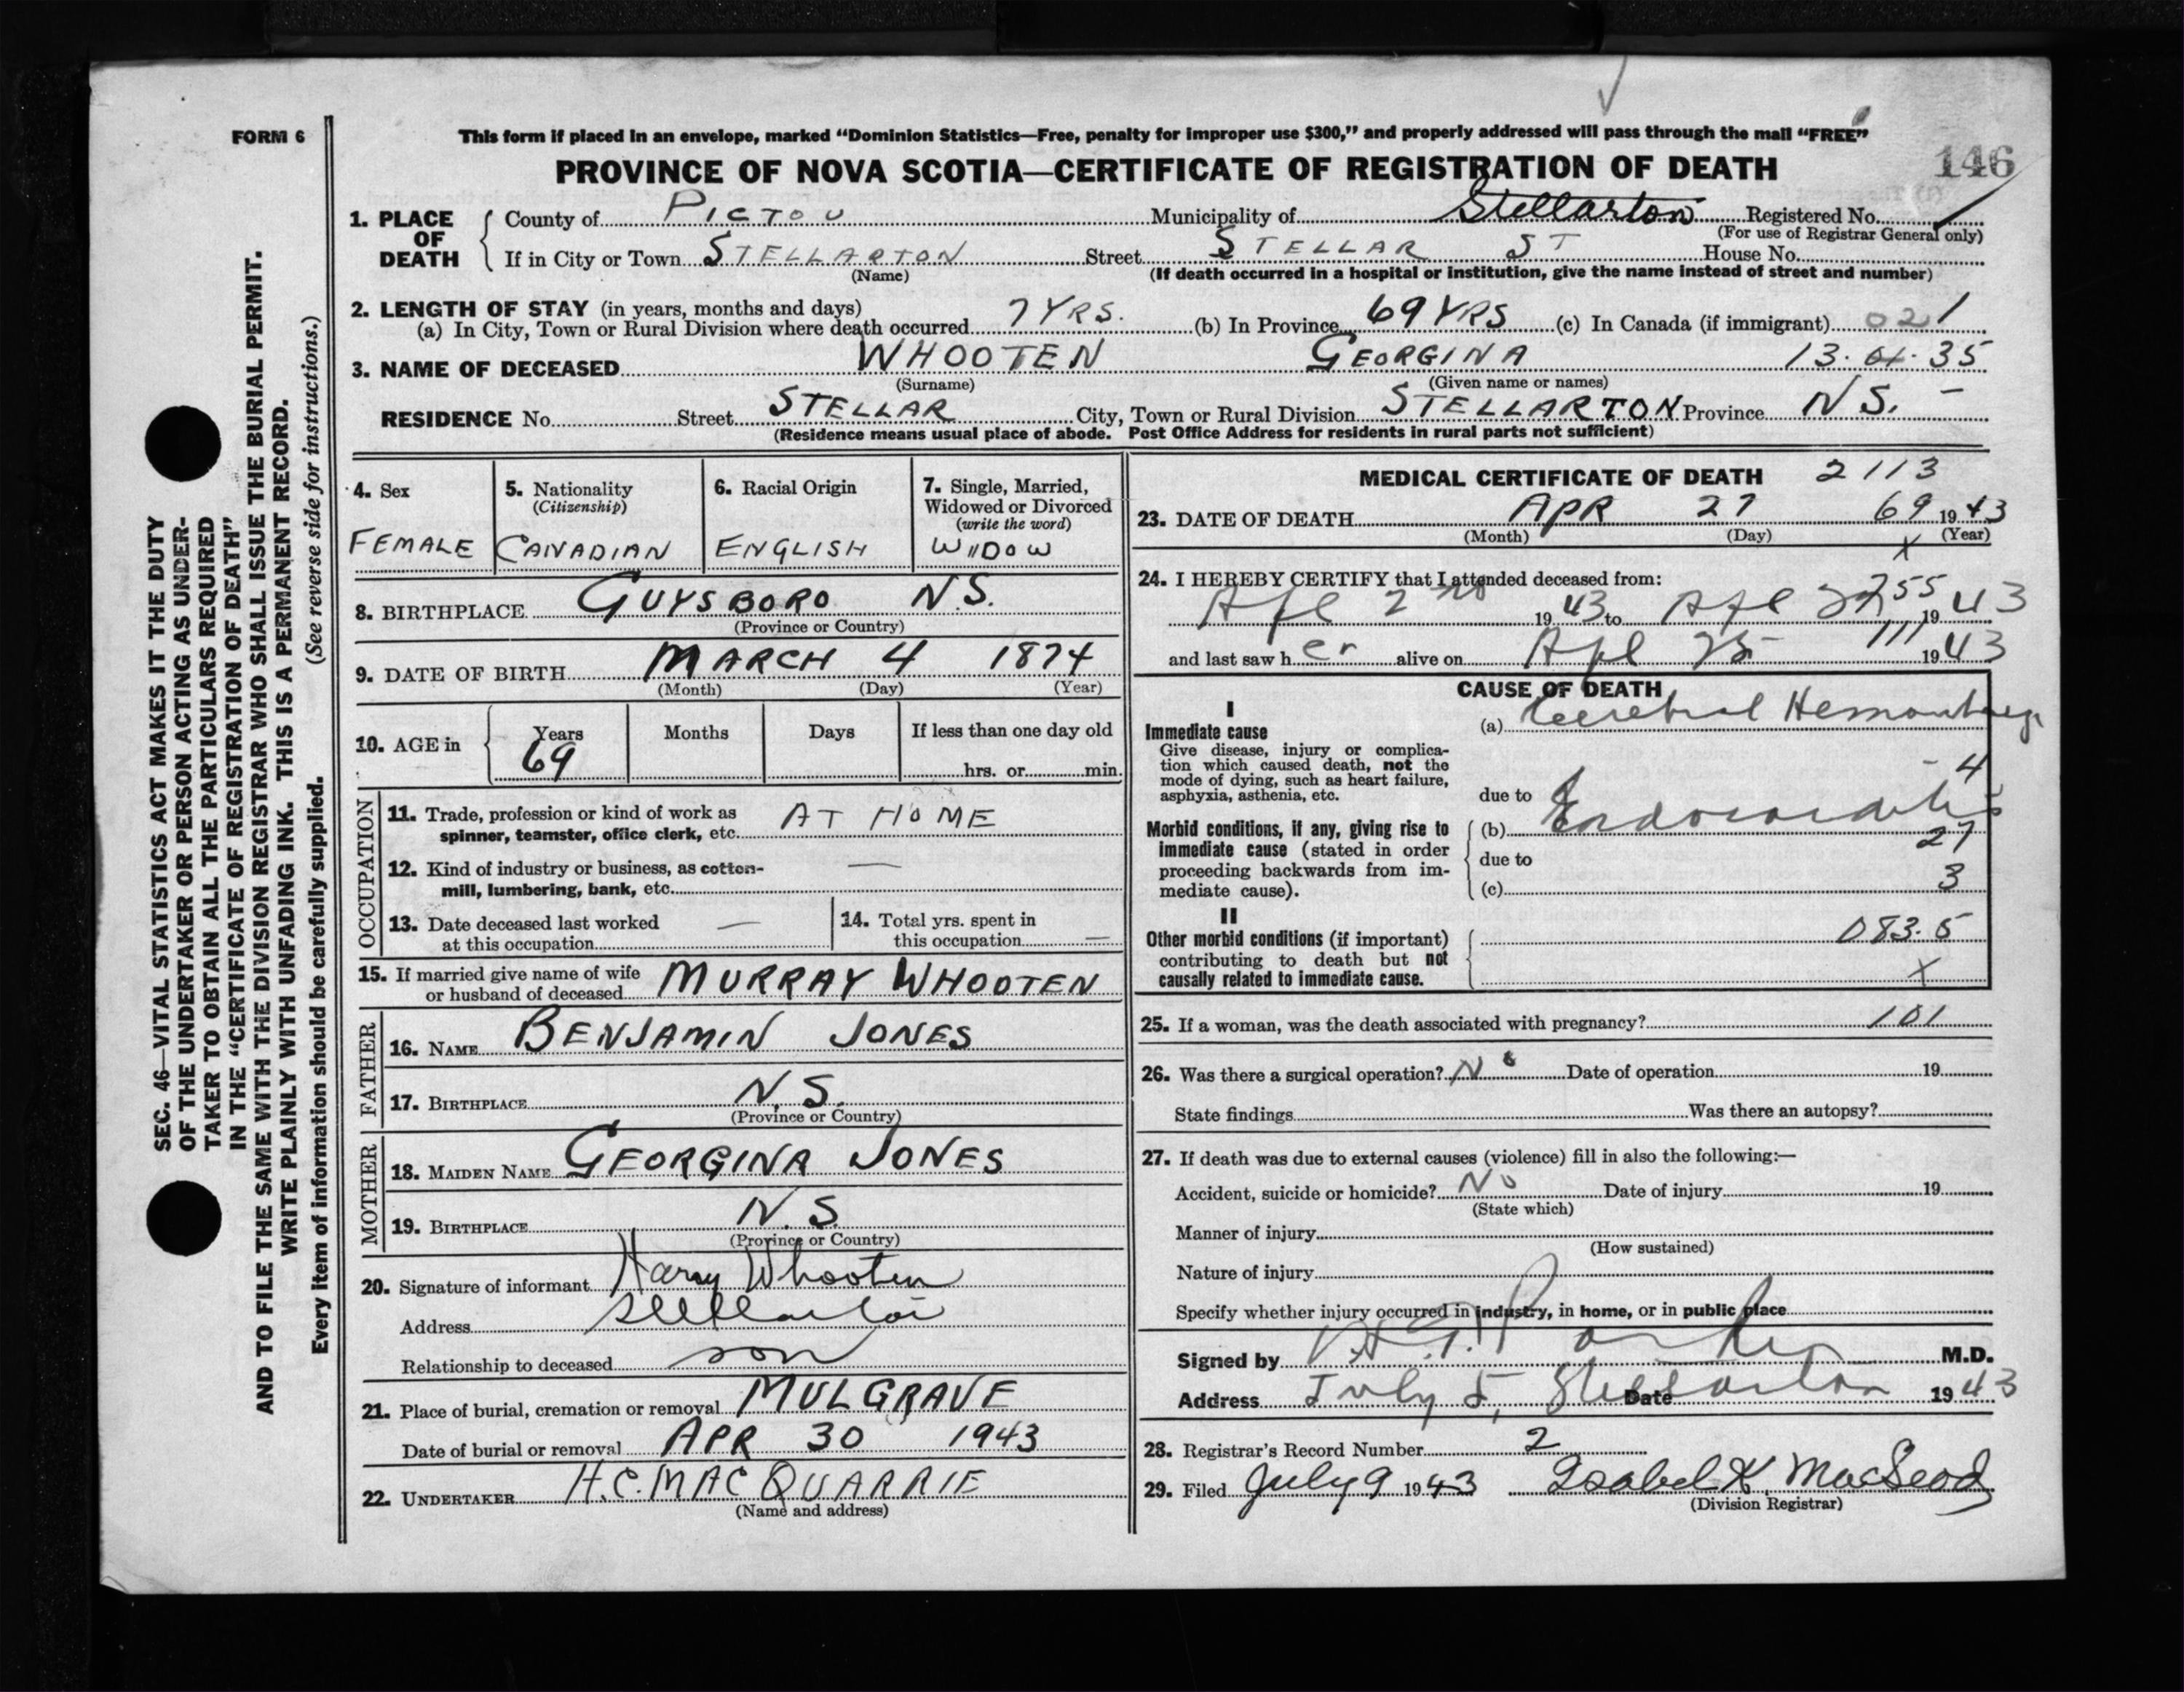 FORM 6
This form if placed in an envelope, marked “Dominion Statistics—Free, penalty for improper use $300,” and properly addressed will pass through the mail “FREE”
PROVINCE OF NOVA SCOTIA—CERTIFICATE OF REGISTRATION OF DEATH
146
1. PLACE OF DEATH County of PICTOU Municipality of Stellarton Registered No.
(For use of Registrar General only)
If in City or Town STELLARTON Street STELLAR ST House No.
(Name) (If death occurred in a hospital or institution, give the name instead of street and number)
2. LENGTH OF STAY (in years, months and days)
(a) In City, Town or Rural Division where death occurred 7 YRS. (b) In Province 69 YRS (c) In Canada (if immigrant) 021
3. NAME OF DECEASED WHOOTEN GEORGINA 13.01.35
(Surname) (Given name or names)
RESIDENCE No. Street STELLAR City, Town or Rural Division STELLARTON Province N S. –
(Residence means usual place of abode. Post Office Address for residents in rural parts not sufficient)
4. Sex
FEMALE
5. Nationality
(Citizenship)
CANADIAN
6. Racial Origin
ENGLISH
7. Single, Married,
Widowed or Divorced
(write the word)
WIDOW
8. BIRTHPLACE GUYSBORO N.S.
(Province or Country)
9. DATE OF BIRTH MARCH 4 1874
(Month) (Day) (Year)
10. AGE in Years Months Days If less than one day old
69 hrs. or min.
OCCUPATION
11. Trade, profession or kind of work as
spinner, teamster, office clerk, etc. AT HOME
12. Kind of industry or business, as cotton-
mill, lumbering, bank, etc. —
13. Date deceased last worked
at this occupation —
14. Total yrs. spent in
this occupation —
15. If married give name of wife
or husband of deceased MURRAY WHOOTEN
FATHER
16. NAME BENJAMIN JONES
17. BIRTHPLACE N.S.
(Province or Country)
MOTHER
18. MAIDEN NAME GEORGINA JONES
19. BIRTHPLACE N.S.
(Province or Country)
20. Signature of informant Harry Whooten
Address Stellarton
Relationship to deceased son
21. Place of burial, cremation or removal MULGRAVE
Date of burial or removal APR 30 1943
22. UNDERTAKER H.C. MACQUARRIE
(Name and address)
MEDICAL CERTIFICATE OF DEATH 2113
23. DATE OF DEATH APR 27 69 1943
(Month) (Day) (Year)
x
24. I HEREBY CERTIFY that I attended deceased from:
Apl 2 1943 to Apl 55 1943
and last saw her alive on Apl 25 111 1943
CAUSE OF DEATH
I
Immediate cause
Give disease, injury or complica-
tion which caused death, not the
mode of dying, such as heart failure,
asphyxia, asthenia, etc.
(a) Cerebral Hemorrhage
- 4
due to
Morbid conditions, if any, giving rise to
immediate cause (stated in order
proceeding backwards from im-
mediate cause).
(b) Endocarditis
27
due to
(c) 3
II
Other morbid conditions (if important)
contributing to death but not
causally related to immediate cause.
083.5
x
25. If a woman, was the death associated with pregnancy? 101
26. Was there a surgical operation? No Date of operation 19
State findings Was there an autopsy?
27. If death was due to external causes (violence) fill in also the following:—
Accident, suicide or homicide? No Date of injury 19
(State which)
Manner of injury
(How sustained)
Nature of injury
Specify whether injury occurred in industry, in home, or in public place
Signed by M.D.
Address July 5, Stellarton Date 1943
28. Registrar's Record Number 2
29. Filed July 9 1943 Isabel K. MacLeod
(Division Registrar)
SEC. 46—VITAL STATISTICS ACT MAKES IT THE DUTY
OF THE UNDERTAKER OR PERSON ACTING AS UNDER-
TAKER TO OBTAIN ALL THE PARTICULARS REQUIRED
IN THE “CERTIFICATE OF REGISTRATION OF DEATH”
AND TO FILE THE SAME WITH THE DIVISION REGISTRAR WHO SHALL ISSUE THE BURIAL PERMIT.
WRITE PLAINLY WITH UNFADING INK. THIS IS A PERMANENT RECORD.
Every item of information should be carefully supplied. (See reverse side for instructions.)